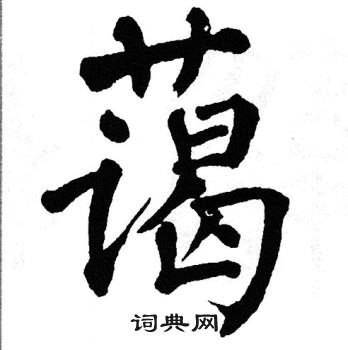 蔼
词典网